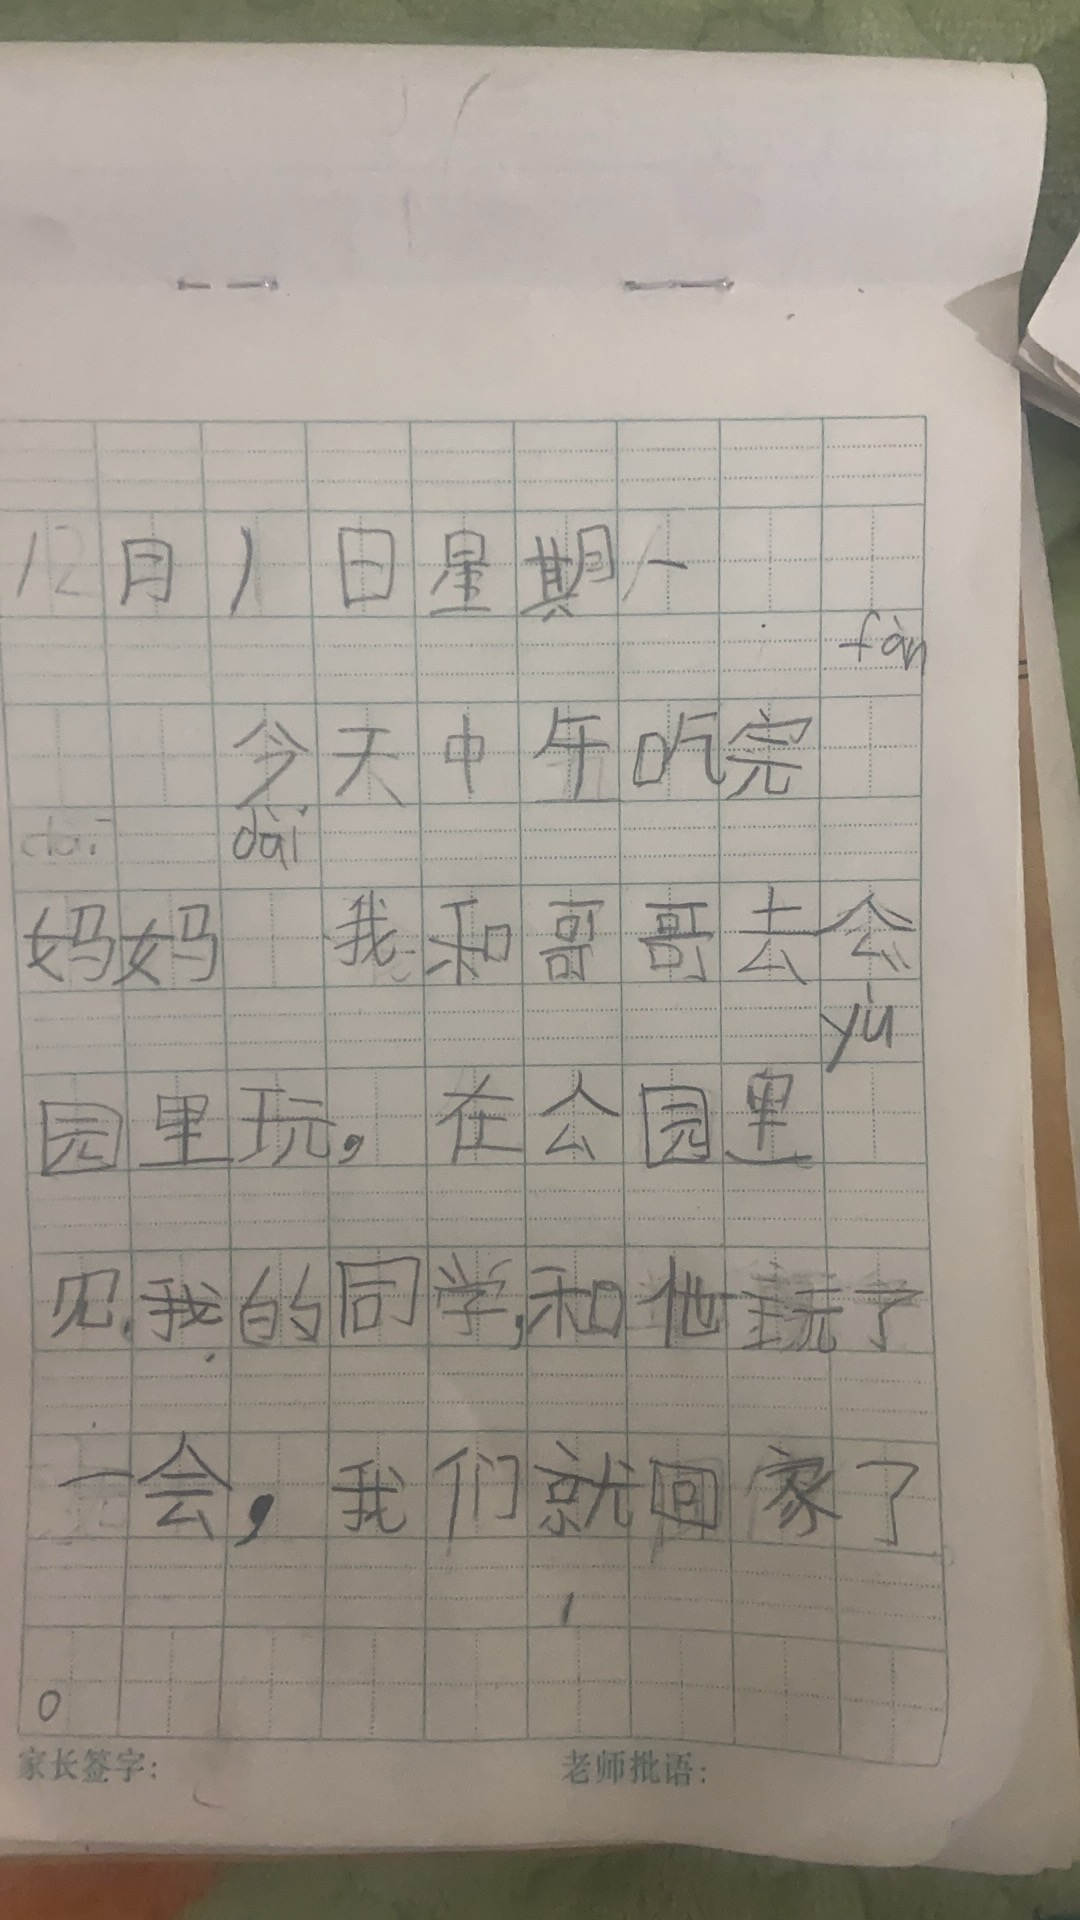 12月1日星期一
fàn
今天中午吃完
dài
妈妈 我和哥哥去公
yù
园里玩，在公园里
见，我的同学，和他玩了
一会，我们就回家了
。
家长签字： 老师批语：